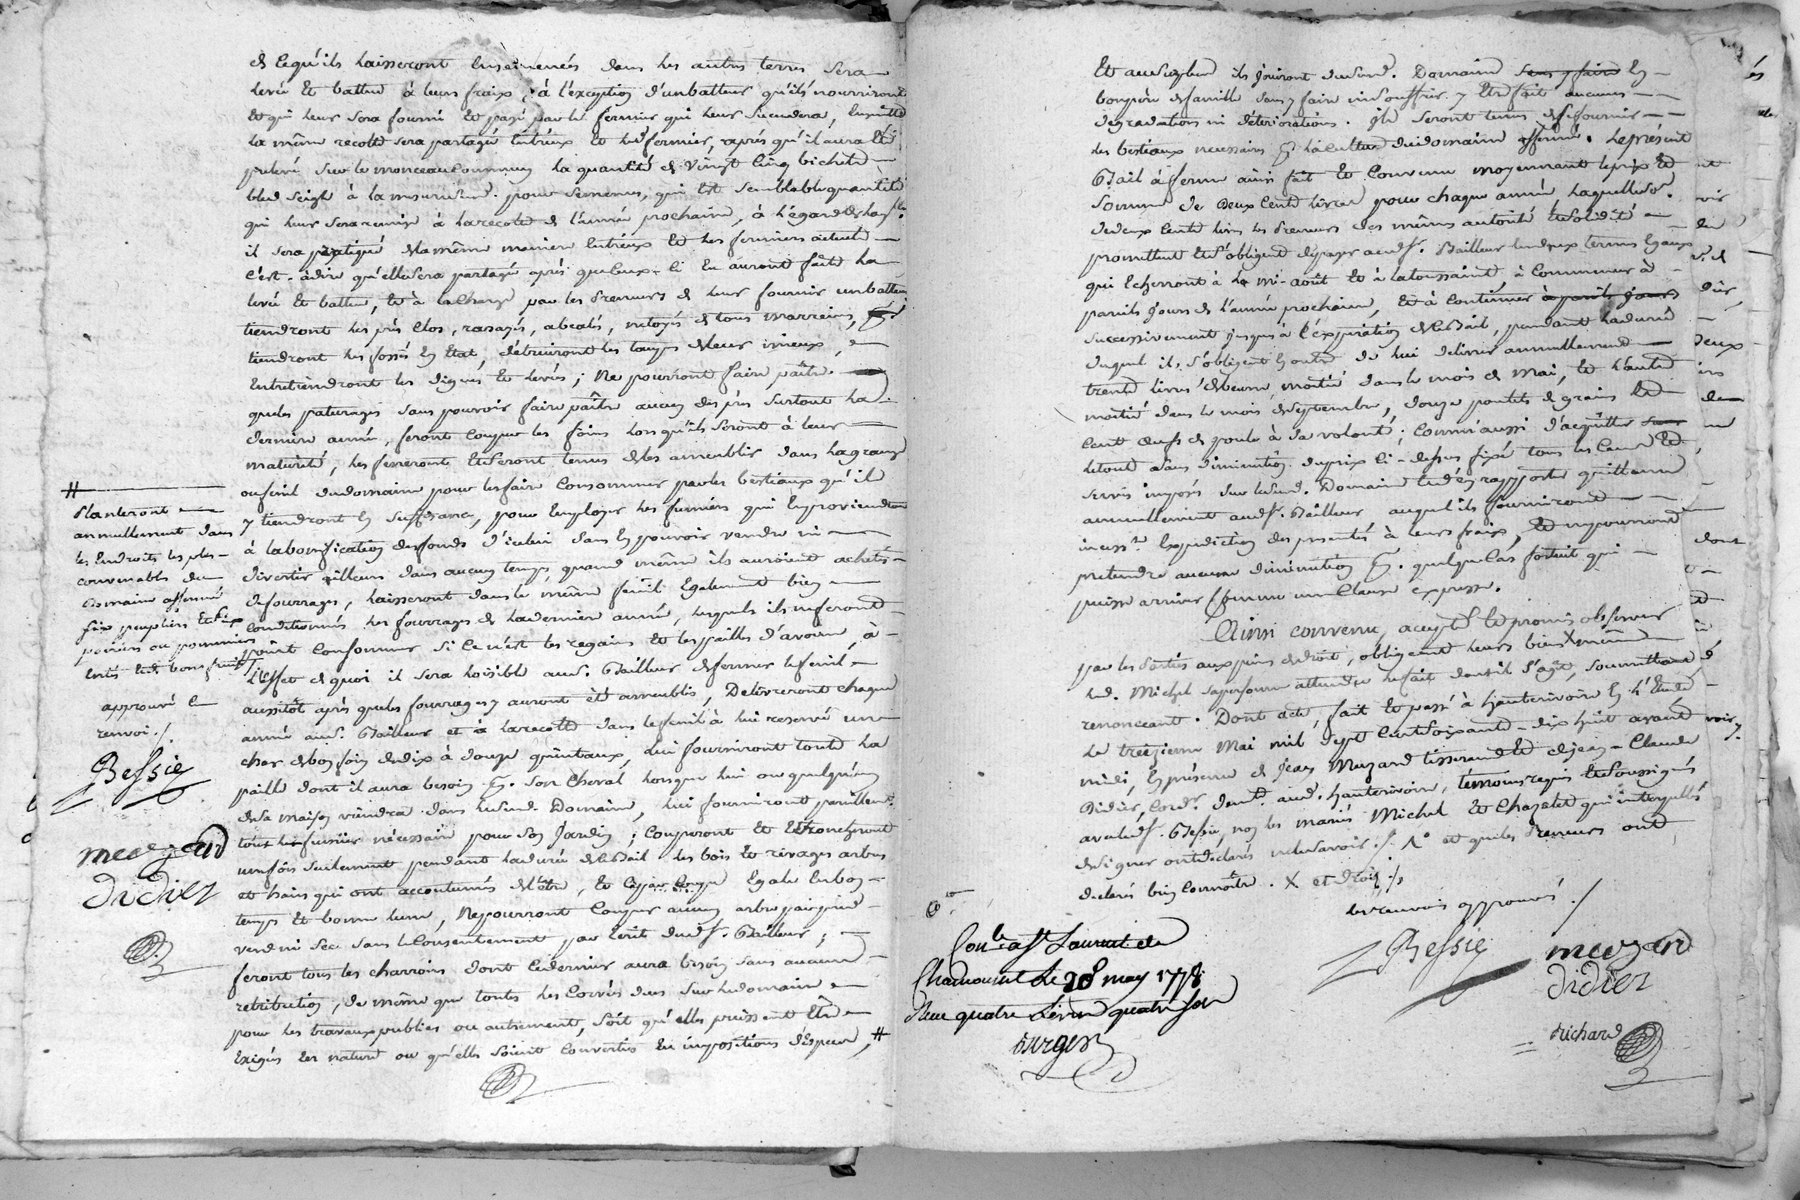 et ce qu'ils laisseront ensemencés dans les autres terres sera
levé et battu à leurs fraix, à l'exception d'un batteur qu'ils nourriront
et qui leur sera fourni et payé par le fermier qui leur succedera, ensuitte
la même recolte sera partagée entr'eux et led fermier, après qu'il aura été
prelevé sur le monceau commun la quantité de vingt cinq bichets
bled seigle à la mesure pour semences, qui est semblable quantité
qui leur sera remise à la recolte de l'année prochaine, à l'égard de la
il sera pratiqué de la même maniere entr'eux et les fermiers actuels
c'est-à-dire qu'elle sera partagée après que ceux-ci en auront faite la
levée et battue, et à la charge par les Preneurs de leur fournir un batteur
tiendront les prés clos, rasayés, abealés, netoyés de tous marreins,
tiendront les fossés en état, détruiront les taupes de leur mieux,
entretiendront les digues et levées; ne pourront faire paître
que les paturages sans pouvoir faire paître aucun des prés surtout la
derniere année, feront couper les foins lorsqu'ils seront à leur
maturité, les feneront et seront tenus de les ameublir dans la grange
ou fenil dudomaine pour les faire consommer par les bestiaux qu'il
y tiendront en suffisance, pour employer les fumiers qui en proviendront
à la bonification des fonds d'icelui sans en pouvoir vendre ni
divertir ailleurs dans aucun temps quand même ils auroient achetés
des fourrages, laisseront dans le même fenil également bien
conditionnés les fourrages de la derniere année, lesquels ils ne feront
point consommer si ce n'est les regains et les pailles d'avoine, à
l'effet de quoi il sera loisible aud. Bailleur de fermer le fenil
aussitôt après que les fourrages y auront été ameublis, Delivreront chaque
année aud. Bailleur et à la recolte dans le fenil à lui reservé un
char de bon foin de dix à douze quintaux, lui fourniront toute la
paille dont il aura besoin pr. son cheval lorsque lui ou quelqu'un
de sa maison viendra dans le susd. Domaine, lui fourniront pareillemt.
tout le fumier nécessaire pour son Jardin; couperont et étroncheront
une fois seulement pendant la durée de ce Bail les bois et rivages arbres
et hais qui ont accoutumés de l'être, et coupe egale en bon
temps et bonne lune, Ne pourront couper aucun arbre par pied
verd ni sec sans le consentement par écrit dudSr. Bailleur;
feront tous les charrois dont ce dernier aura besoin sans aucune
retribution, de même que toutes les corvées dues sur le domaine
pour les travaux publics ou autrement, soit qu'elles puissent être
exigées en nature ou qu'elles soient converties en impositions d'espece, #
#
Planteront
annuellement dans
les endroits les plus
convenables du
Domaine affermé
six peupliers et six
poiriers ou pommiers
entés de bons fruits
approuvé le
renvoi ./.
Bessie
meozard
didier
et au surplus ils jouiront dususd. Domaine sans y faire en
bon pere de famille sans y faire ni souffrir y être fait aucunes
degradations ni détériorations. Ils seront tenus de se fournir
les bestiaux necessaires pr. la culture dudomaine affermé. Le présent
Bail à ferme ainsi fait et convenu moyennant le prix et
somme de Deux cents livres pour chaque année laquelle somme
de deux cents livres les Preneurs des mêmes autorité et solidité
promettent et s'obligent de payer audSr. Bailleur en deux termes égaux
qui écherront à la mi-août et à la toussaint à commencer à
pareils jours de l'année prochaine, et à continuer à pareils jours
successivement jusques à l'expiration de ce Bail, pendant la durée
duquel ils s'obligent en outre de lui delivrer annuellement
trente livres de beurre moitié dans le mois de Mai, et l'autre
moitié dans le mois de septembre, douze poulets de grains et
cent œufs de poule à sa volonté; comm'aussi d'acquitter
le tout sans diminution du prix ci-dessus fixé tous les cens et
servis imposés sur le susd. Domaine et d'en rapporter quittance
annuellement audSr. Bailleur auquel ils fourniront
incesst. Expedition des presentes à leurs fraix, et ne pourront
pretendre aucune diminution pr. quelque cas fortuit qui
puisse arriver comme une clause expresse.
Ainsi convenu, accepté et promis observer
par les Parties aux peines de droit, obligeant leurs biens X même
led. Michel sa personne attendu le fait dont il s'agit, soumettant
renonçant. Dont acte, fait et passé à hauterivoire en l'Etude
le treizieme Mai mil sept cent soixante-dix huit avant
midi, en présence de Jean Mezard tisserand et de Jean-Claude
Didier, cordr. demt. aud. hauterivoire, temoins requis et soussignés
avec ledSr. Bessie, non les mariés Michel et Chazelet qui interpellés
de signer ont déclarés ne le savoir ./. No et que les Preneurs ont
declaré bien connoître. X et droits ./.
les renvois approuvés ./
Bessie meozard
didier
richard
Con.le a St Laurent de
Chamousset Le 28 may 1778
Reçu quatre Livres quatre sols
durger